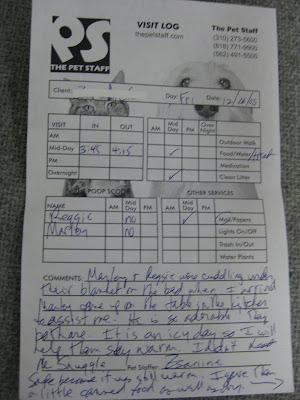 PS
THE PET STAFF
VISIT LOG
thepetstaff.com
The Pet Staff
(310) 273-5600
(818) 771-9900
(562) 491-5500
Client: Day: Fri Date: 12/16/05
VISIT IN OUT
AM
Mid-Day 3:45 4:15
PM
Overnight
AM Mid Day PM Over Night
Outdoor Walk
✓ Food/Water/treat
Medication
✓ Clean Litter
POOP SCOOP
NAME AM Mid Day PM
Reggie no
Marley no
OTHER SERVICES
AM Mid Day PM
✓ Mail/Papers
Lights On/Off
Trash In/Out
Water Plants
COMMENTS: Marley & Reggie were cuddling under
their blanket on the bed when I arrived
Marley came up on the table in the kitchen
to assist me. He is so adorable! They
both are. It is an icy day so I will
help them stay warm. I didn't heat
the Snuggle
Pet Staffer:
Safe because it was still warm. I gave them
a little canned food as well as dry. →